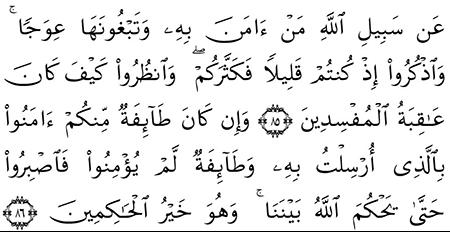 عَن سَبِيلِ ٱللَّهِ مَنْ ءَامَنَ بِهِۦ وَتَبْغُونَهَا عِوَجًا ۚ
وَٱذْكُرُوٓا۟ إِذْ كُنتُمْ قَلِيلًا فَكَثَّرَكُمْ ۖ وَٱنظُرُوا۟ كَيْفَ كَانَ
عَـٰقِبَةُ ٱلْمُفْسِدِينَ ٨٥ وَإِن كَانَ طَآئِفَةٌ مِّنكُمْ ءَامَنُوا۟
بِٱلَّذِىٓ أُرْسِلْتُ بِهِۦ وَطَآئِفَةٌ لَّمْ يُؤْمِنُوا۟ فَٱصْبِرُوا۟
حَتَّىٰ يَحْكُمَ ٱللَّهُ بَيْنَنَا ۚ وَهُوَ خَيْرُ ٱلْحَـٰكِمِينَ ٨٦